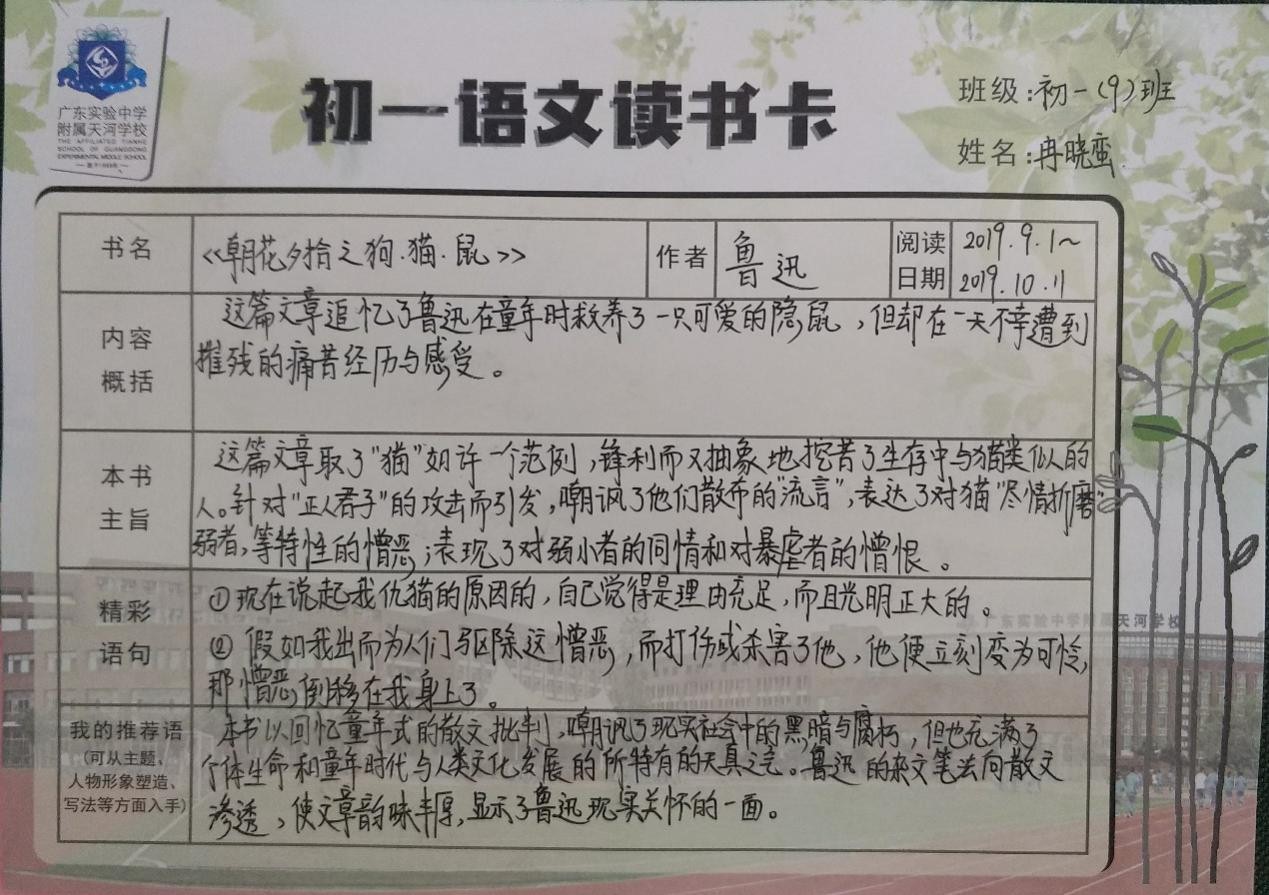 广东实验中学
附属天河学校
THE AFFILIATED TIANHE
SCHOOL OF GUANGDONG
EXPERIMENTAL MIDDLE SCHOOL
初一语文读书卡
班级:初一(9)班
姓名:冉晓蛮
书名
<<朝花夕拾之狗.猫.鼠>>
作者
鲁迅
阅读
日期
2019.9.1~
2019.10.11
内容
概括
这篇文章追忆了鲁迅在童年时救养了一只可爱的隐鼠,但却在一天不幸遭到
摧残的痛苦经历与感受。
本书
主旨
这篇文章取了"猫"如许一个范例,锋利而又抽象地挖苦了生存中与猫类似的
人。针对"正人君子"的攻击而引发,嘲讽了他们散布的"流言",表达了对猫"尽情折磨"
弱者,等特性的憎恶;表现了对弱小者的同情和对暴虐者的憎恨。
精彩
语句
①现在说起我仇猫的原因的,自己觉得是理由充足,而且光明正大的。
② 假如我出而为人们驱除这憎恶,而打伤或杀害了他,他便立刻变为可怜,
那憎恶倒移在我身上了。
我的推荐语
(可从主题、
人物形象塑造、
写法等方面入手)
本书以回忆童年式的散文批判,嘲讽了现实社会中的黑暗与腐朽,但也充满了
个体生命和童年时代与人类文化发展的所特有的天真之气。鲁迅的杂文笔法向散文
渗透,使文章韵味丰厚,显示了鲁迅现实关怀的一面。
广东实验中学附属天河学校